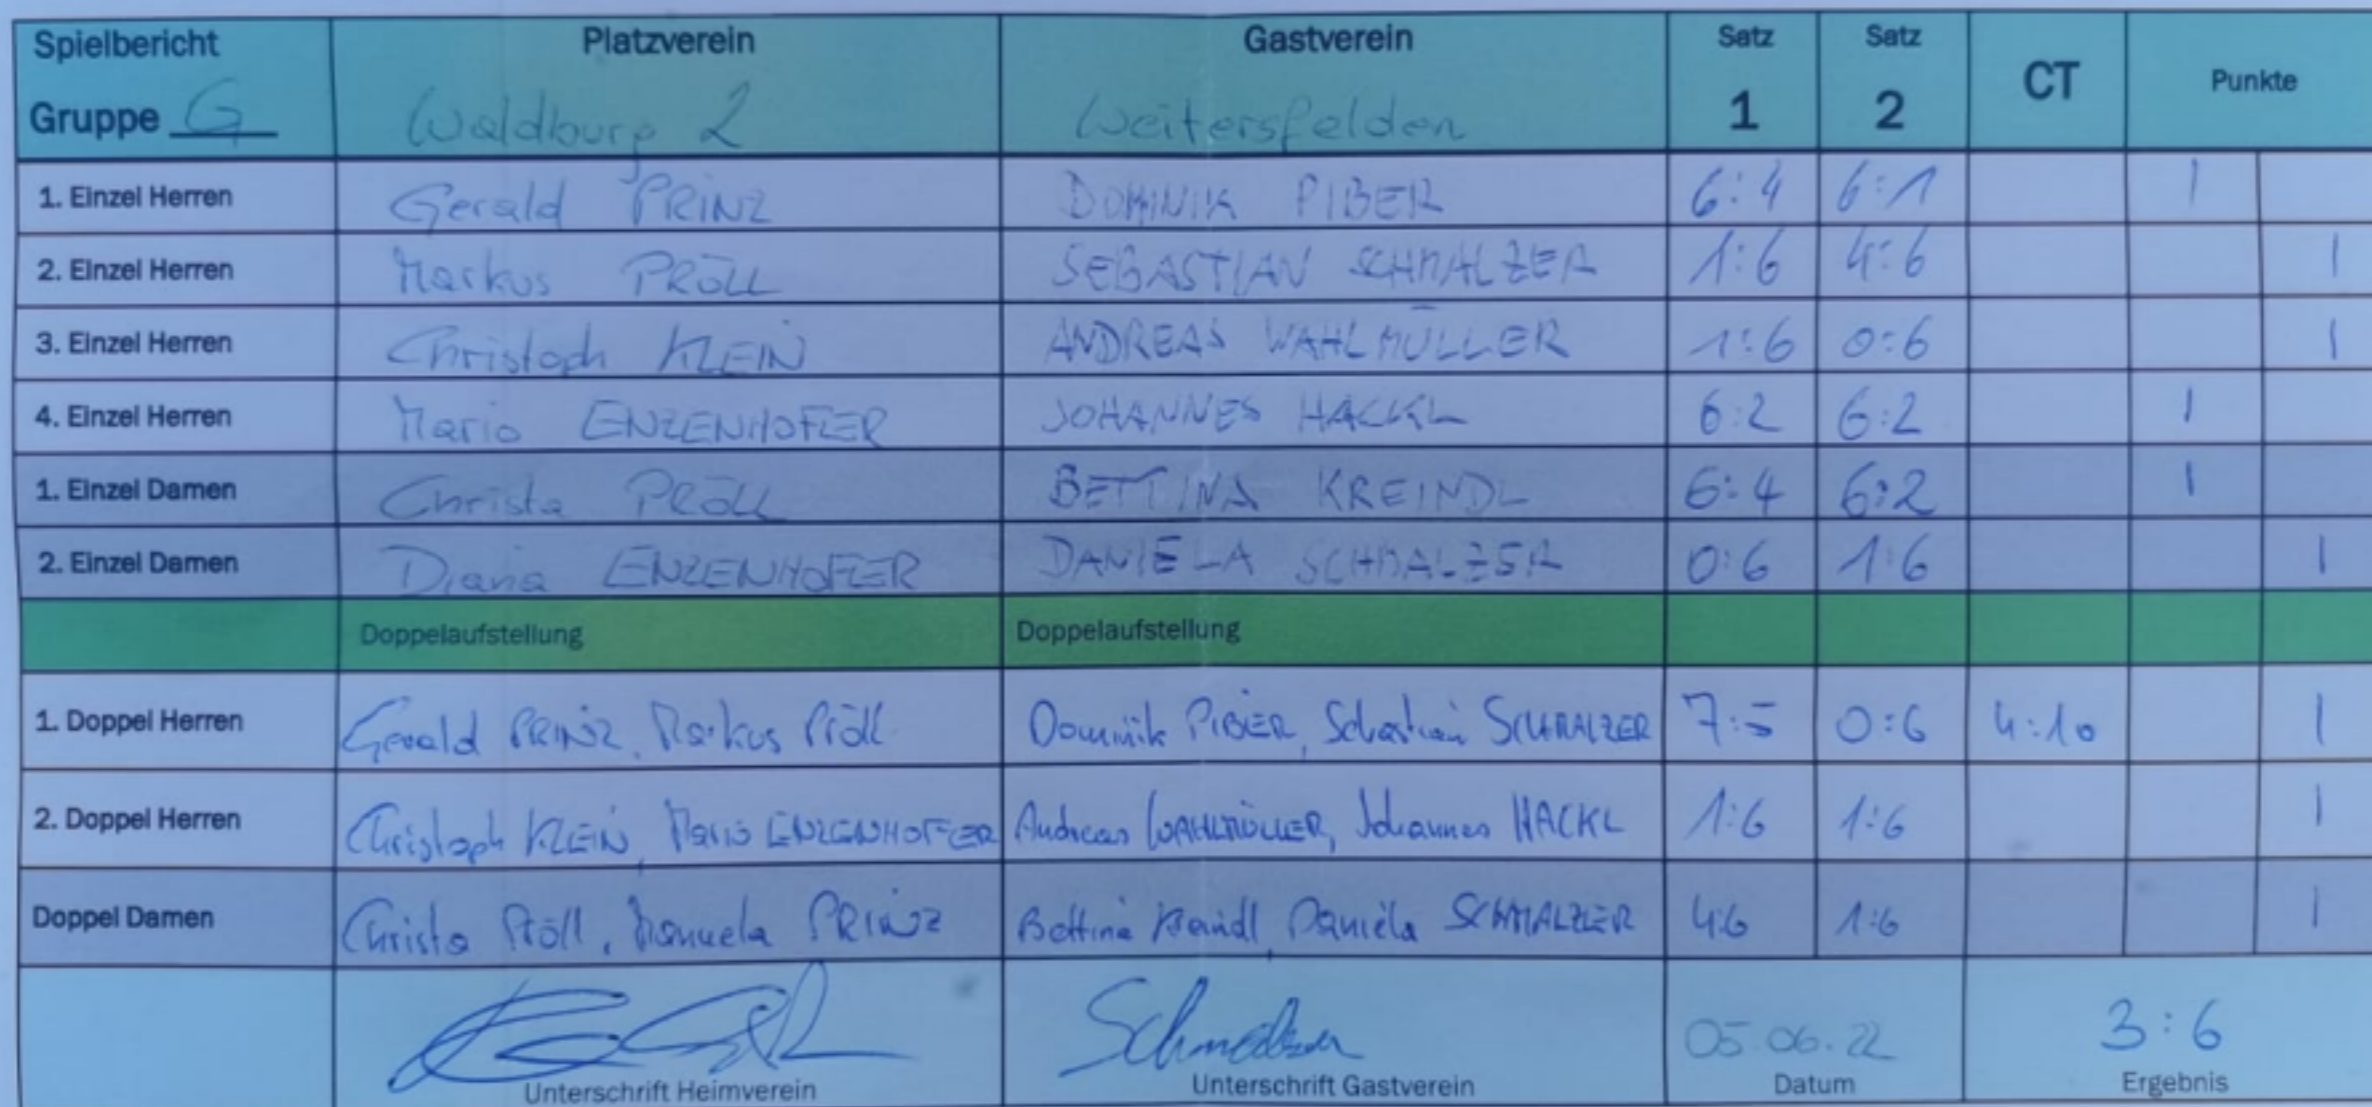 Spielbericht Platzverein Gastverein Satz Satz CT Punkte
Gruppe G Waldburg 2 Weitersfelden 1 2
1. Einzel Herren Gerald PRINZ DOMINIK PIBER 6:4 6:1 1
2. Einzel Herren Markus PRÖLL SEBASTIAN SCHMALZER 1:6 4:6 1
3. Einzel Herren Christoph KLEIN ANDREAS WAHLMÜLLER 1:6 0:6 1
4. Einzel Herren Mario ENZENHOFER JOHANNES HACKL 6:2 6:2 1
1. Einzel Damen Christa PRÖLL BETTINA KREINDL 6:4 6:2 1
2. Einzel Damen Diana ENZENHOFER DANIELA SCHMALZER 0:6 1:6 1
Doppelaufstellung Doppelaufstellung
1. Doppel Herren Gerald PRINZ, Markus Pröll Dominik PIBER, Sebastian SCHMALZER 7:5 0:6 4:10 1
2. Doppel Herren Christoph KLEIN, Mario ENZENHOFER Andreas WAHLMÜLLER, Johannes HACKL 1:6 1:6 1
Doppel Damen Christa Pröll, Manuela PRINZ Bettina Kreindl, Daniela SCHMALZER 4:6 1:6 1
Schmalzer 05.06.22 3:6
Unterschrift Heimverein Unterschrift Gastverein Datum Ergebnis